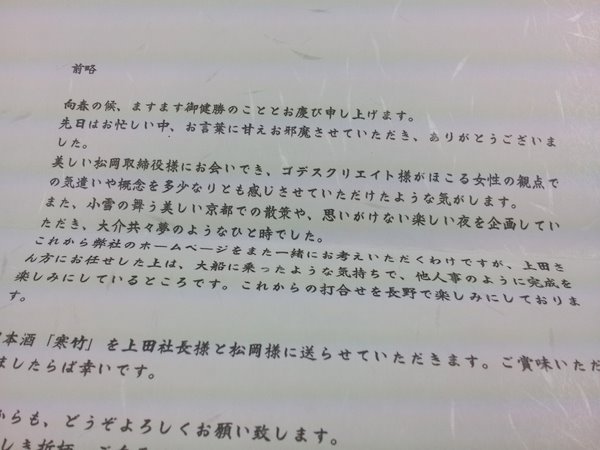 前略
向春の候、ますます御健勝のこととお慶び申し上げます。
先日はお忙しい中、お言葉に甘えお邪魔させていただき、ありがとうございま
した。
美しい松岡取締役様にお会いでき、ゴデスクリエイト様がほこる女性の観点で
の気遣いや概念を多少なりとも感じさせていただけたような気がします。
また、小雪の舞う美しい京都での散策や、思いがけない楽しい夜を企画してい
ただき、大介共々夢のようなひと時でした。
これから弊社のホームページをまた一緒にお考えいただくわけですが、上田さ
ん方にお任せした上は、大船に乗ったような気持ちで、他人事のように完成を
楽しみにしているところです。これからの打合せを長野で楽しみにしておりま
す。
本酒「寒竹」を上田社長様と松岡様に送らせていただきます。ご賞味いただ
ましたらば幸いです。
からも、どうぞよろしくお願い致します。